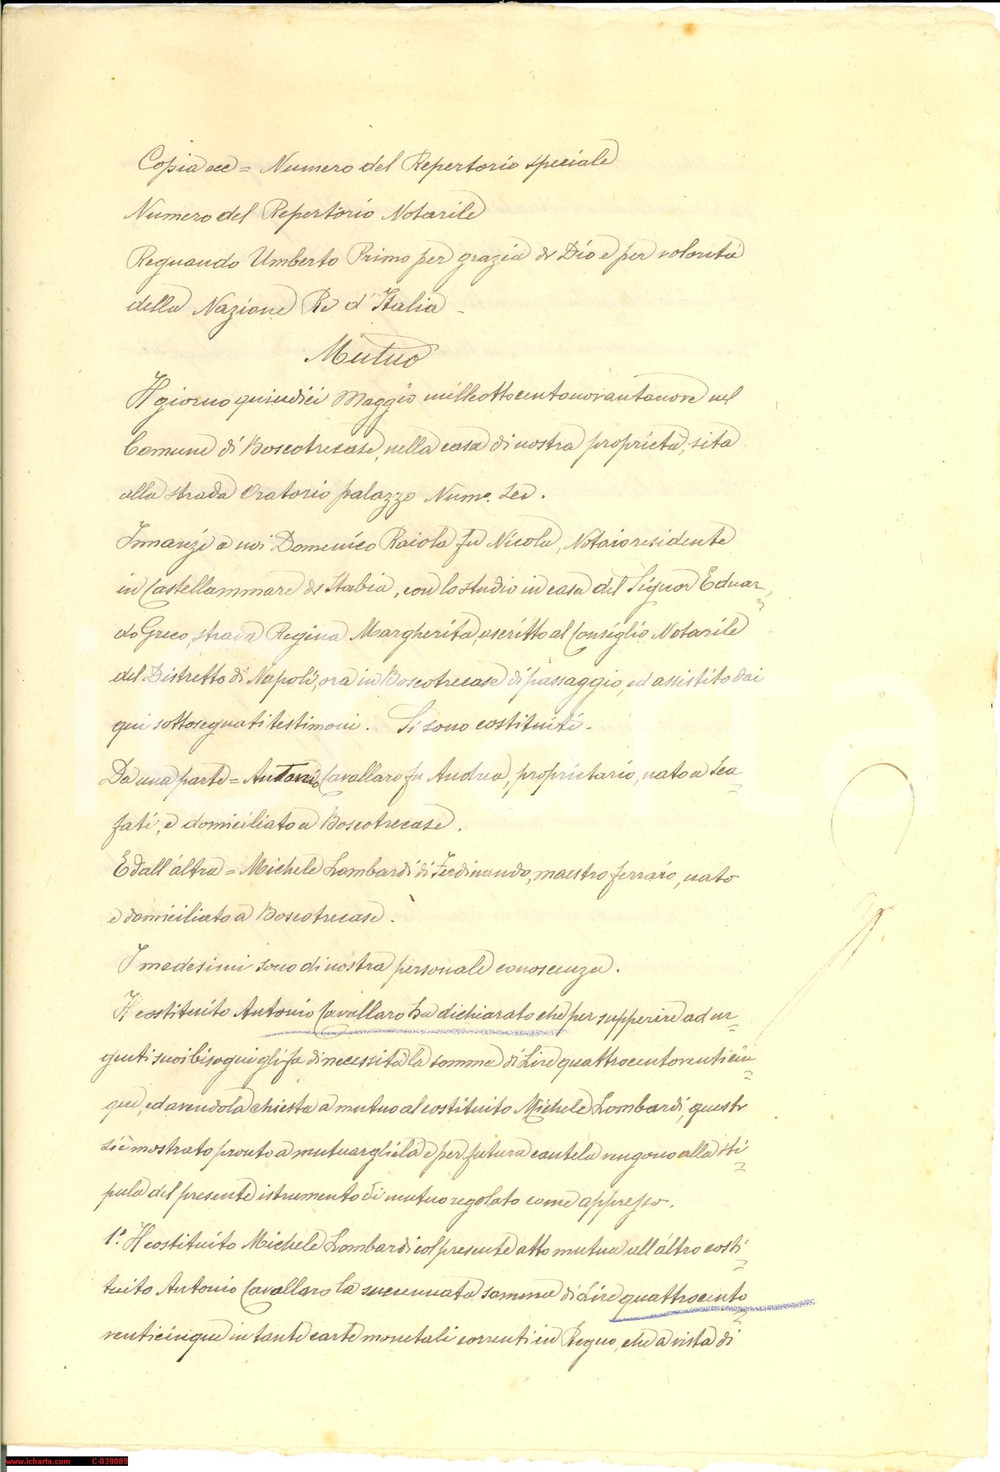 Copia ecc = Numero del Repertorio speciale
Numero del Repertorio Notarile
Regnando Umberto Primo per grazia di Dio e per volontà
della Nazione Re d'Italia -
Mutuo
Il giorno quindici Maggio milleottocentonovantanove nel
Comune di Boscotrecase, nella casa di nostra proprietà, sita
alla strada Oratorio palazzo Num.o sei.
Innanzi a noi Domenico Raiola fu Nicola, Notaio residente
in Castellammare di Stabia, con lo studio in casa del Signor Eduar=
do Greco, strada Regina Margherita, ascritto al Consiglio Notarile
del Distretto di Napoli, ora in Boscotrecase di passaggio, ed assistito dai
qui sottosegnati testimoni. Si sono costituiti -
Da una parte = Antonio Cavallaro fu Andrea, proprietario, nato a Sca=
fati, e domiciliato a Boscotrecase.
Ed all'altra = Michele Lombardi di Ferdinando, maestro ferraro, nato
e domiciliato a Boscotrecase.
I medesimi sono di nostra personale conoscenza.
Il costituito Antonio Cavallaro ha dichiarato che per supperire ad ur=
genti suoi bisogni gli fa di necessità la somma di Lire quattrocentoventicin=
que, ed avendola chiesta a mutuo al costituito Michele Lombardi, questi
si è mostrato pronto a mutuargliela e per futura cautela vengono alla sti=
pula del presente istrumento di mutuo regolato come appresso.
1.o Il costituito Michele Lombardi col presente atto mutua all'altro costi=
tuito Antonio Cavallaro la succennata somma di Lire quattrocento=
venticinque in tante carte monetali correnti in Regno, che a vista di
www.icharta.com C-039089